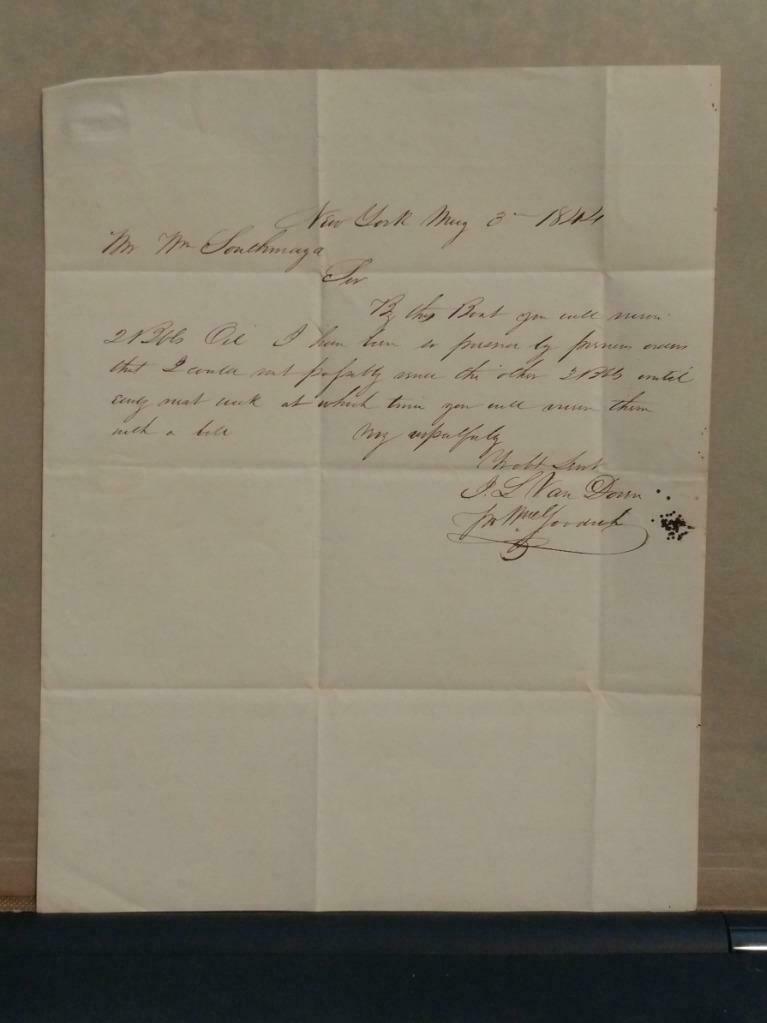 New York May 3rd 1844
Mr Wm Southmayd
Sir
By this Boat you will receive
2 Bbls Oil I have been so pressed by previous orders
that I could not possibly send the other 2 Bbls until
early next week at which time you will receive them
with a bill Very respectfully
Your obt Servt
J. L. Van Doren
pr Goodrich